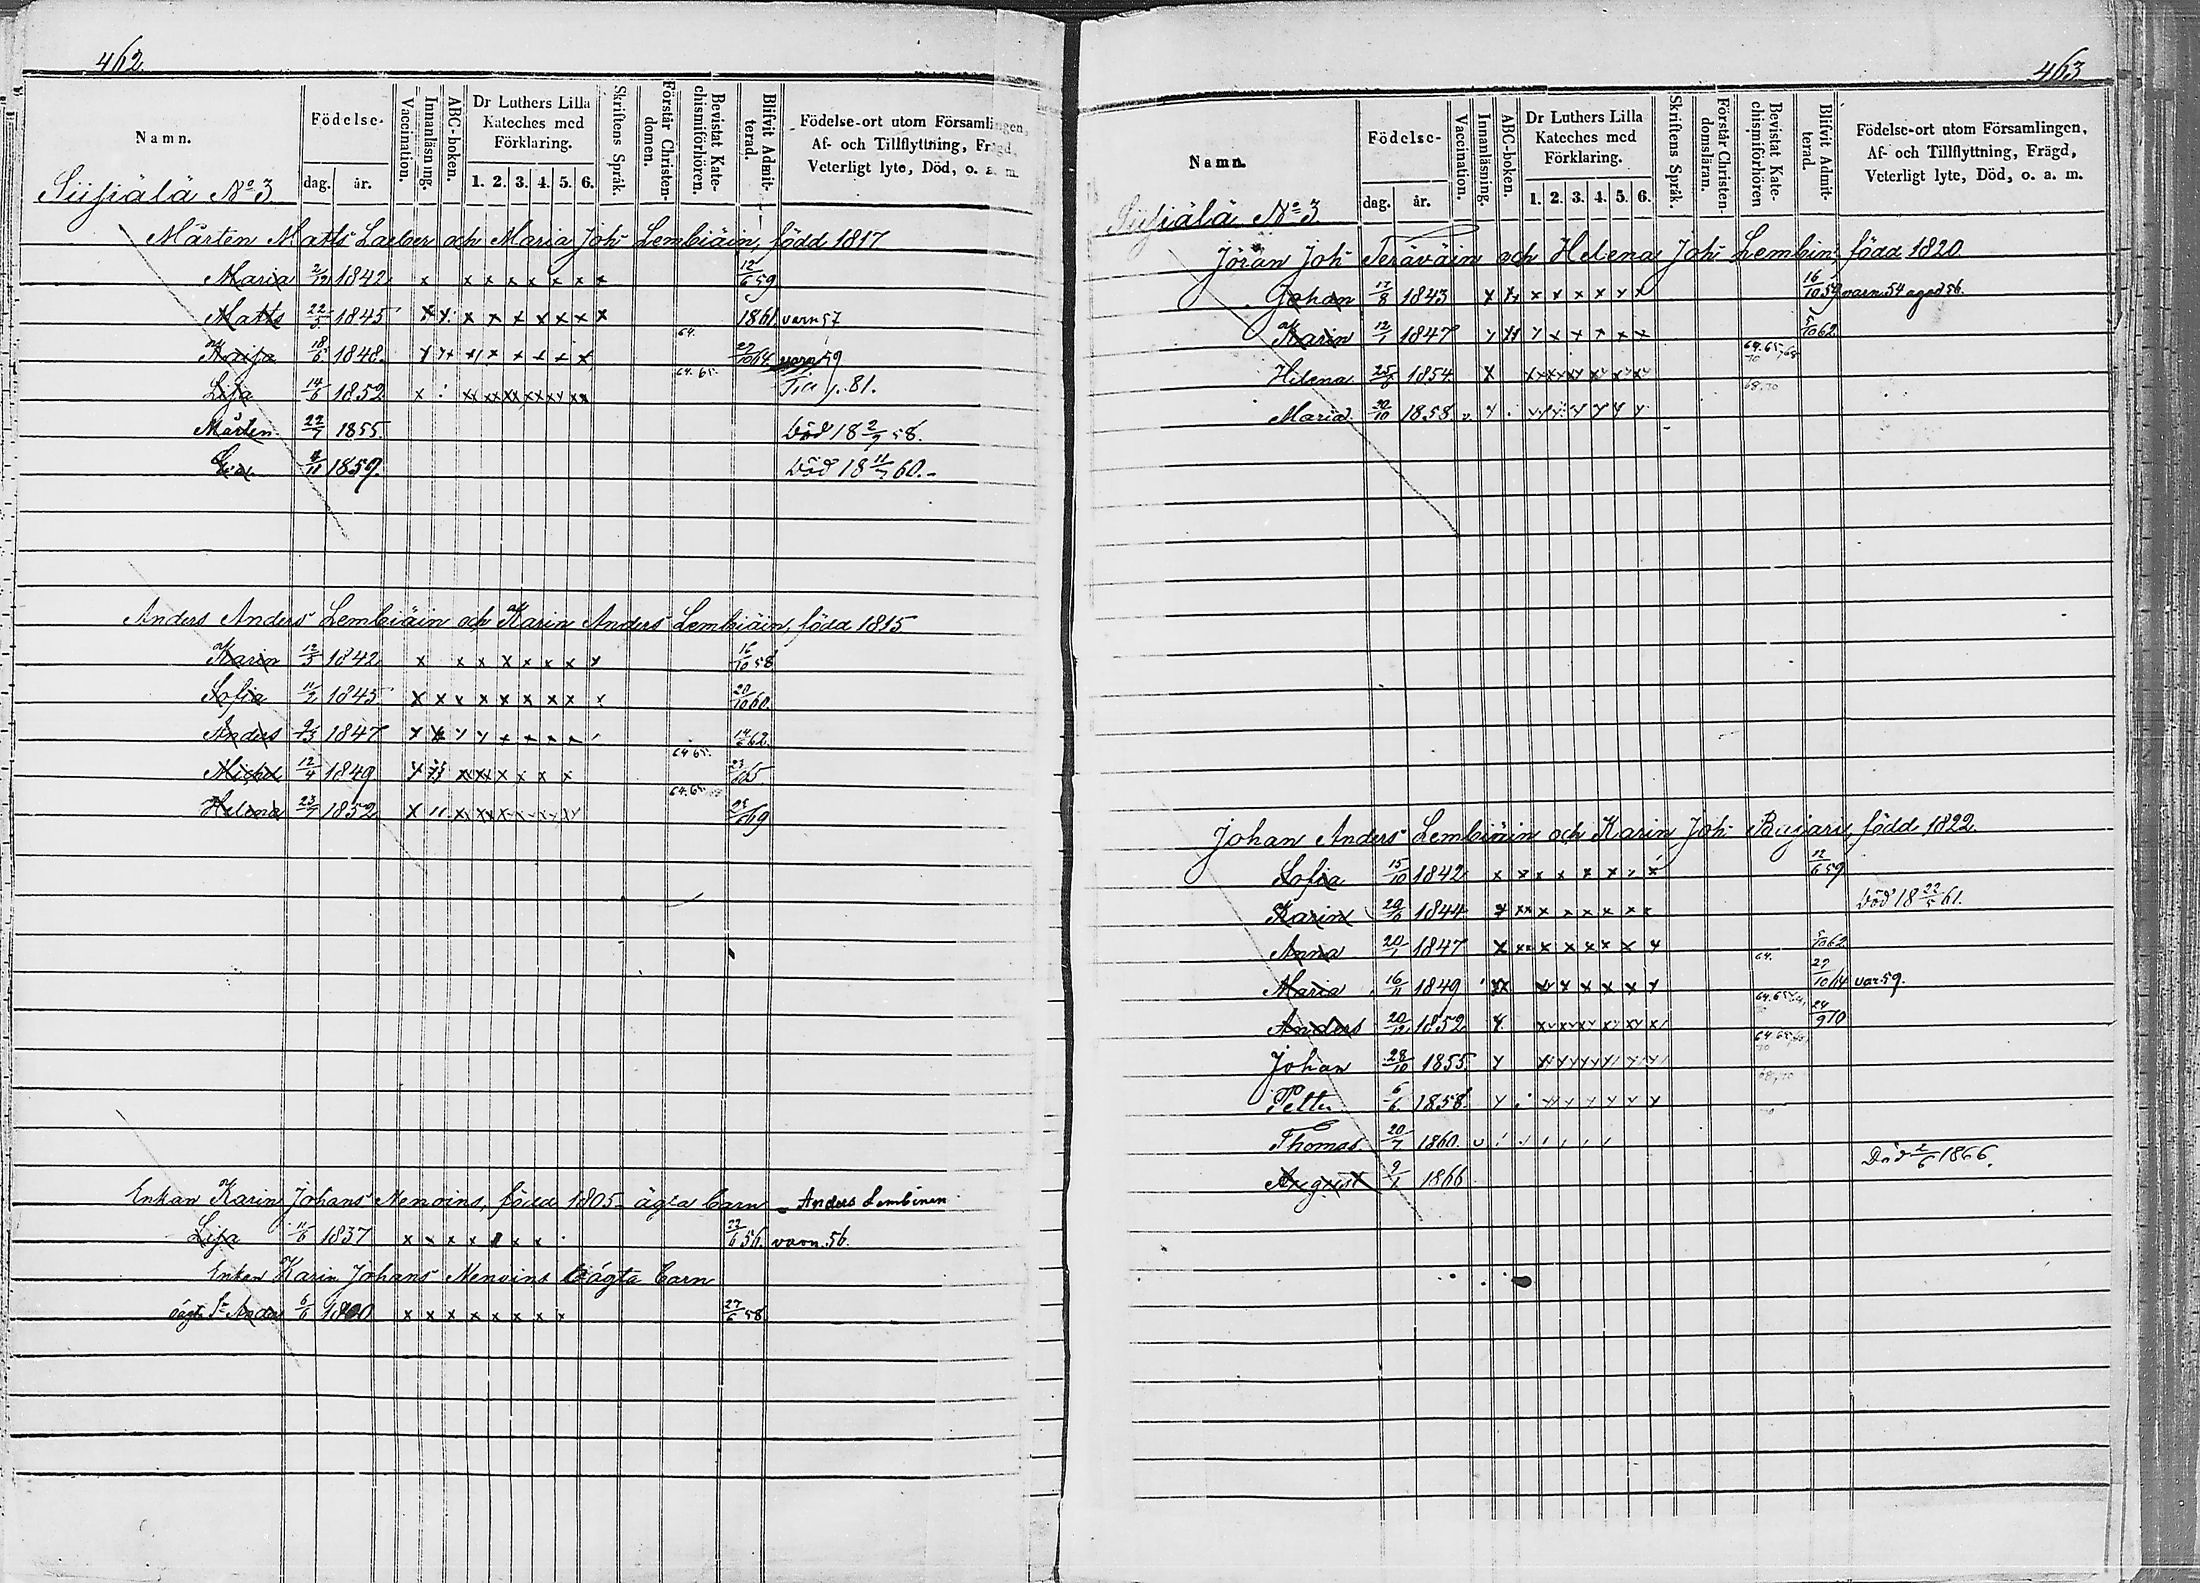 462
Namn.
Födelse-
dag. år.
Vaccination.
Innanläsning.
ABC-boken.
Dr Luthers Lilla Kateches med Förklaring.
1. 2. 3. 4. 5. 6.
Skriftens Språk.
Förstår Christen-domen.
Bevistat Kate-chismiförhören.
Blifvit Admit-terad.
Födelse-ort utom Församlingen,
Af- och Tillflyttning, Frägd,
Veterligt lyte, Död, o. a. m.
Siisiälä No 3
Mårten Matts Laeber och Maria Joh Lembiäin, född 1817
Maria 2/12 1842 x x x x x x x x 12/6 59
Matts 22/5 1845 x x x x x x x x 1861 varn 57
18/6 1848 64. 27/10 64 varn 59
Lisa 14/6 1852 64. 65. p. 81.
Mårten 22/7 1855. Död 18 2/7 58.
1859. Död 18 11/7 60.-
Anders Anders Lembiäin och Karin Anders Lembiäin, född 1815
Karin 12/3 1842 x x x x x x x x 16/10 58
Sofia 11/2 1845 x x x x x x x x x 20/10 60.
Anders 9/3 1847 62.
Michel 12/4 1849 64 65. 65.
Helena 23/7 1852 64. 65 69
Enkan Karin Johans Nenoins, född 1805 - ägta barn - Anders Lembinen
Lisa 11/6 1837 x x x x x x 22/6 56. varn. 56.
Enkan Karin Johans Nenoins oägta barn
oägt. S. Anders 6/6 1840 x x x x x x x x 27/6 58
463
Namn.
Födelse-
dag. år.
Vaccination.
Innanläsning.
ABC-boken.
Dr Luthers Lilla Kateches med Förklaring.
1. 2. 3. 4. 5. 6.
Skriftens Språk.
Förstår Christen-domsläran.
Bevistat Kate-chismiförhören
Blifvit Admit-terad.
Födelse-ort utom Församlingen,
Af- och Tillflyttning, Frägd,
Veterligt lyte, Död, o. a. m.
Siisiälä No 3
Jöran Joh Teräväin och Helena Joh Lembin född 1820
Johan 17/8 1843 16/10 59 varn. 54 aged 56.
Karin 12/1 1847 5/10 62
Helena 25/8 1854 64. 65, 68 70
Maria 20/10 1858 68. 70
Johan Anders Lembiäin och Karin Joh Pajari, född 1822.
Sofia 15/10 1842 12/6 59
Karin 20/6 1844 Död 18 22/5 61.
Anna 20/1 1847 5/10 62
Maria 16/11 1849 64. 27/10 64 var 59.
Anders 20/12 1852 24/9 70
Johan 28/10 1855
Petter 6/6 1858
Thomas 20/7 1860.
August 9/1 1866 Död 2/6 1866.